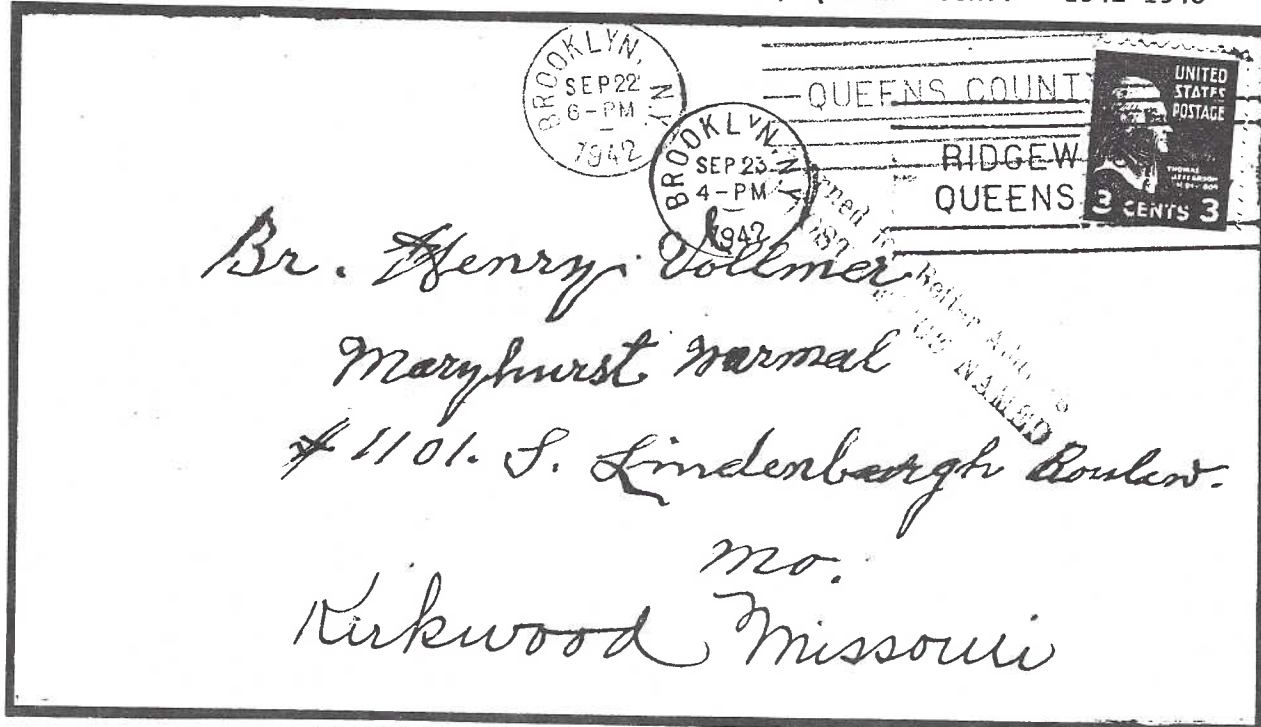 1942-1948
BROOKLYN, N.Y.
SEP 22
6-PM
1942
QUEENS COUNTY
BROOKLYN, N.Y.
SEP 23
4-PM
1942
RIDGEW
QUEENS
UNITED
STATES
POSTAGE
THOMAS
JEFFERSON
3 CENTS 3
Better
NAMED
Br. Henry Vollmer
Maryhurst Normal
1101. S. Lindenbergh Boulev.
Mo.
Kirkwood Missouri